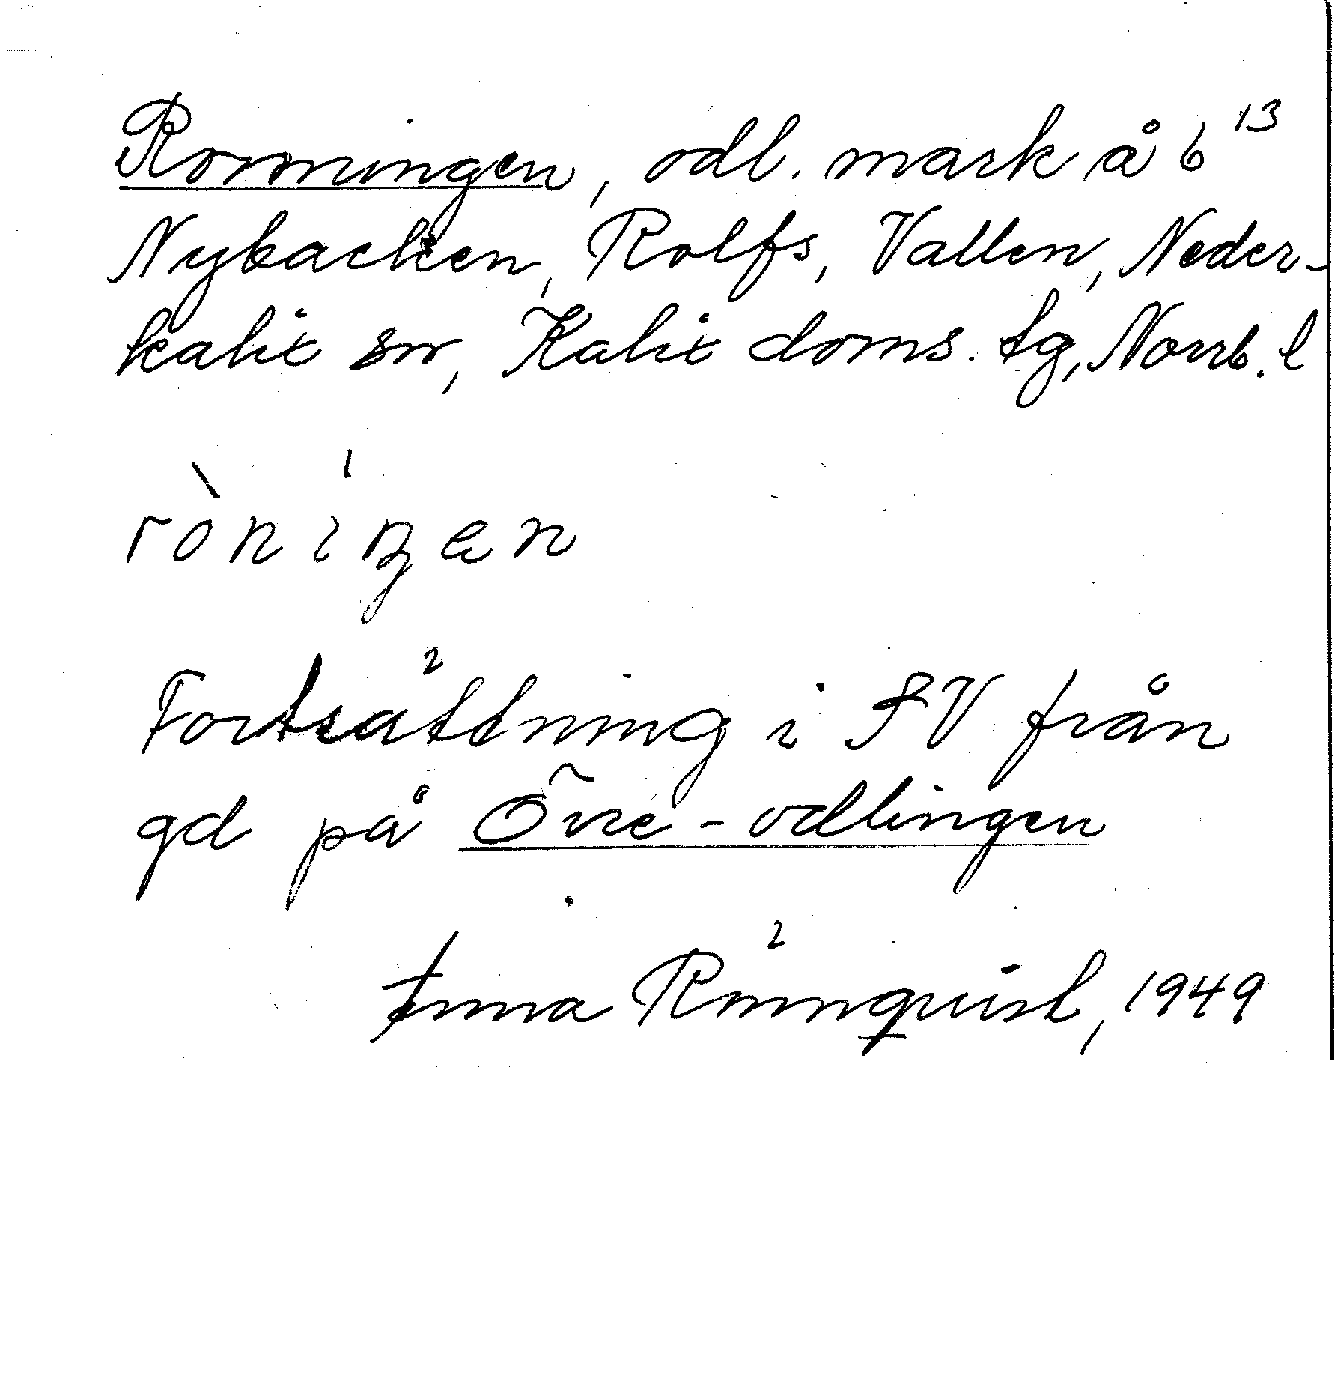 Ronningen, odl. mark å 6 13
Nybacken, Rolfs, Vallen, Neder-
kalix sn, Kalix doms. tg, Norrb. l
ròningen
Fortsättning i SV från
gd på Övre-odlingen
Anna Rönnquist, 1949